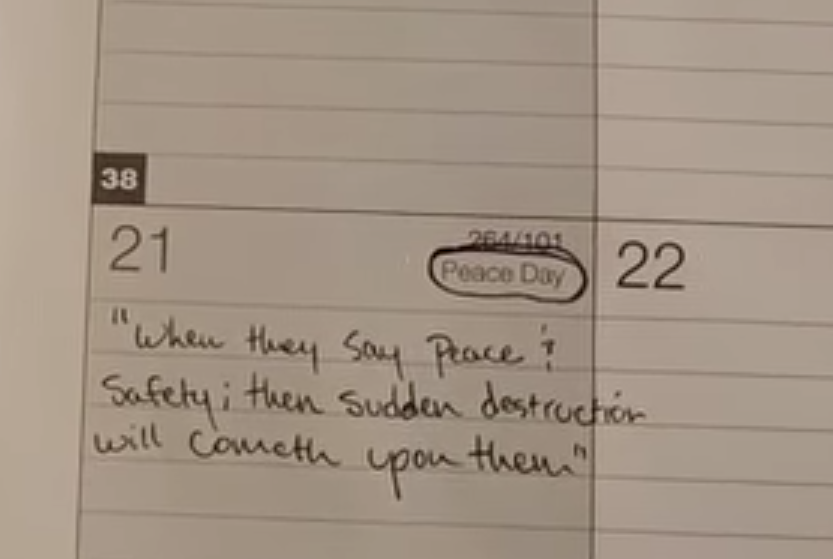 38
21
264/101
Peace Day
22
"When they say Peace &
Safety; then sudden destruction
will cometh upon them"